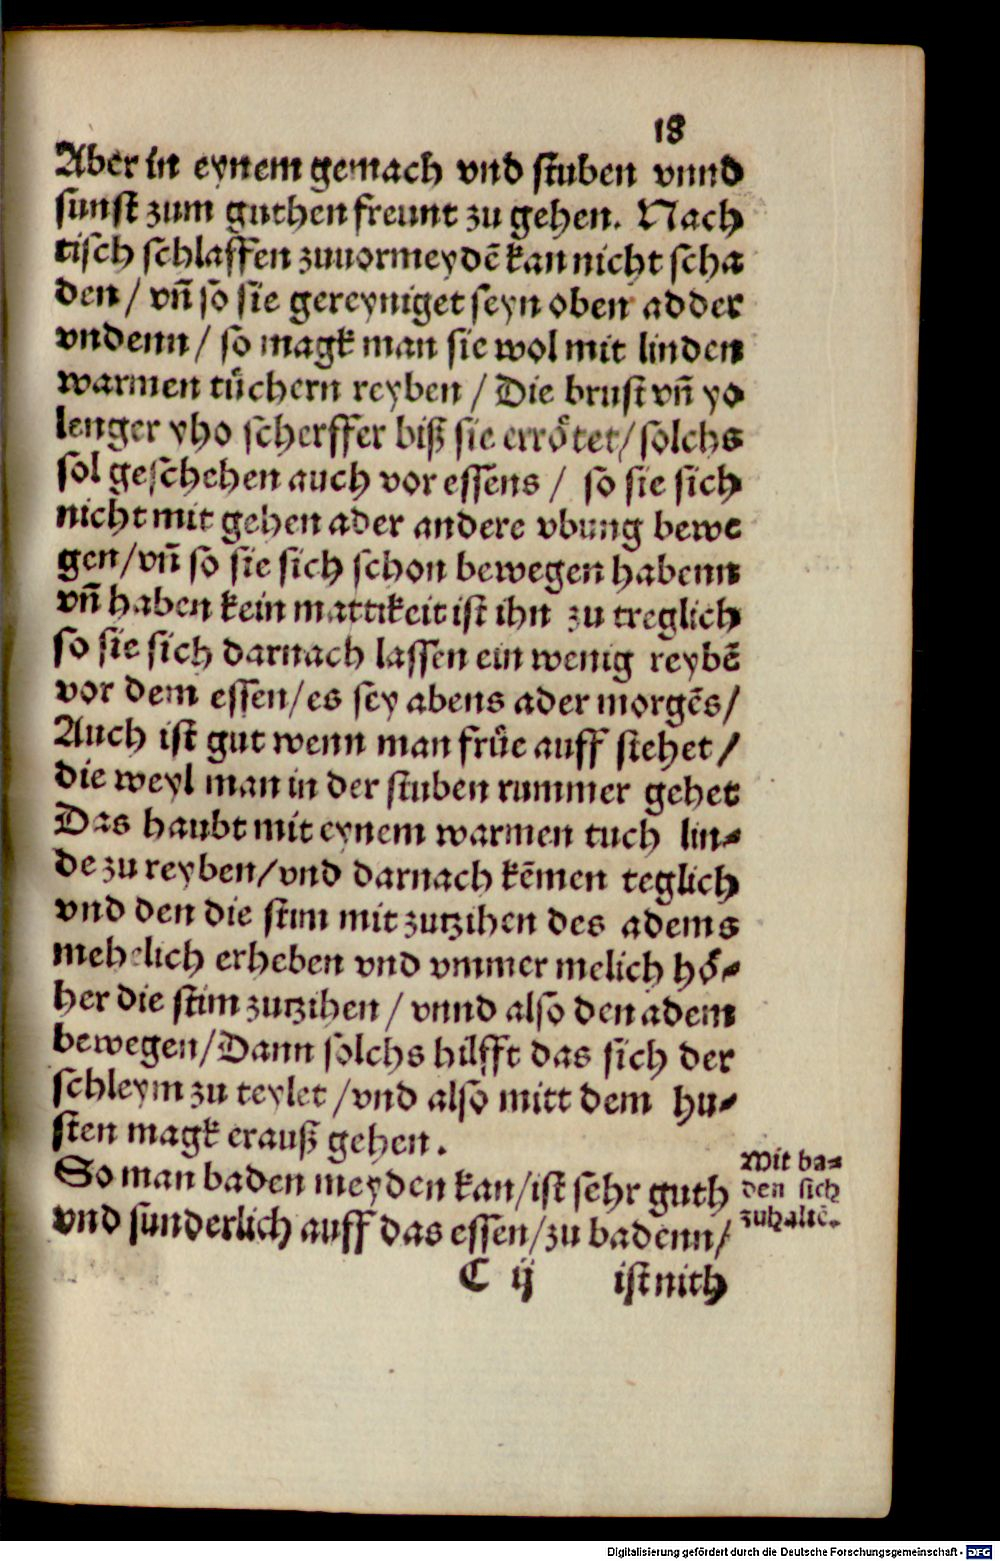 18
Aber in eynem gemach vnd stuben vnnd
sunst zum guthen freunt zu gehen. Nach
tisch schlaffen zuuormeydē kan nicht scha
den / vn̄ so sie gereyniget seyn oben adder
vndenn / so magk man sie wol mit linden
warmen tüchern reyben / Die brust vn̄ yo
lenger yho scherffer biß sie errötet / solchs
sol geschehen auch vor essens / so sie sich
nicht mit gehen ader andere vbung bewe
gen / vn̄ so sie sich schon bewegen habenn
vn̄ haben kein mattikeit ist ihn zu treglich
so sie sich darnach lassen ein wenig reybē
vor dem essen / es sey abens ader morgēs /
Auch ist gut wenn man früe auff stehet /
die weyl man in der stuben rummer gehet
Das haubt mit eynem warmen tuch lin-
de zu reyben / vnd darnach kēmen teglich
vnd den die stim mit zutzihen des adems
mehelich erheben vnd vmmer melich hö-
her die stim zutzihen / vnnd also den adem
bewegen / Dann solchs hilfft das sich der
schleym zu teylet / vnd also mitt dem hu-
sten magk erauß gehen.
So man baden meyden kan / ist sehr guth
vnd sunderlich auff das essen / zu badenn /
Mit ba-
den sich
zuhaltē.
C ij ist nith
Digitalisierung gefördert durch die Deutsche Forschungsgemeinschaft - DFG